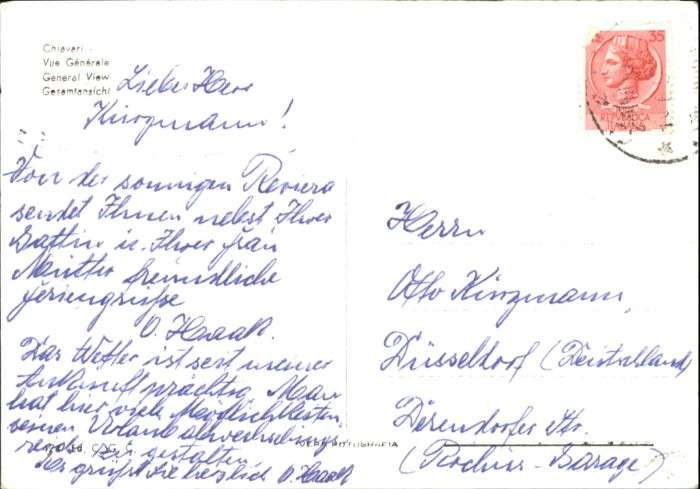 Chiavari -
Vue Générale
General View
Gesamtansicht
Lieber Herr
Kinzmann!
Von der sonnigen Reviera
sendet Ihnen nebst Ihrer
Gattin u. Ihrer Frau
Mutter freundliche
Feriengrüße
O. Haack
Das Wetter ist seit meiner
Ankunft prächtig. Man
hat hier viele Möglichkeiten,
seinen Urlaub abwechslungs-
reich zu gestalten.
Es grüßt Sie herzlich O. Haack
FOTOGRAFIA
35
REPVBBLICA
Herrn
Otto Kinzmann,
Düsseldorf (Deutschland)
Derendorfer Str.
(Rochus-Garage)